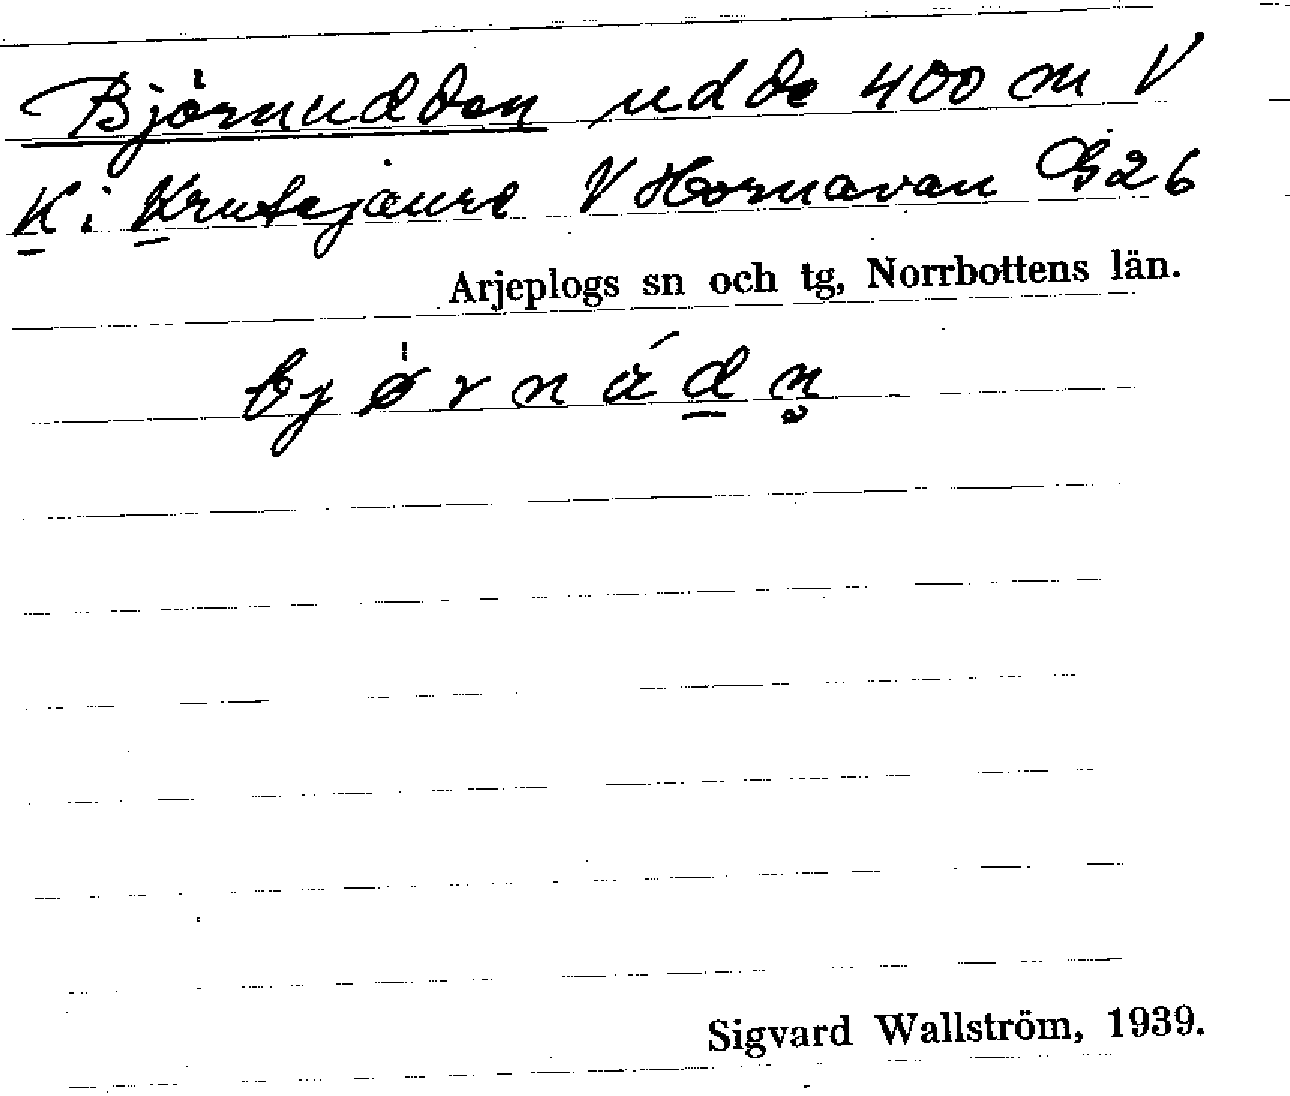 Björnudden udde 400 m V
K i Krutsjaure V Hornavan G26
Arjeplogs sn och tg, Norrbottens län.
bjørnádn̥
Sigvard Wallström, 1939.